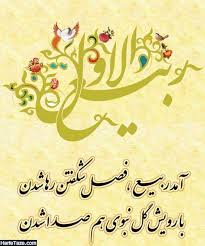 ربیع الاول
آمد ربیع ، فصل شکفتن رها شدن
با رویش گل نبوی هم صدا شدن
HarfeTaze.com